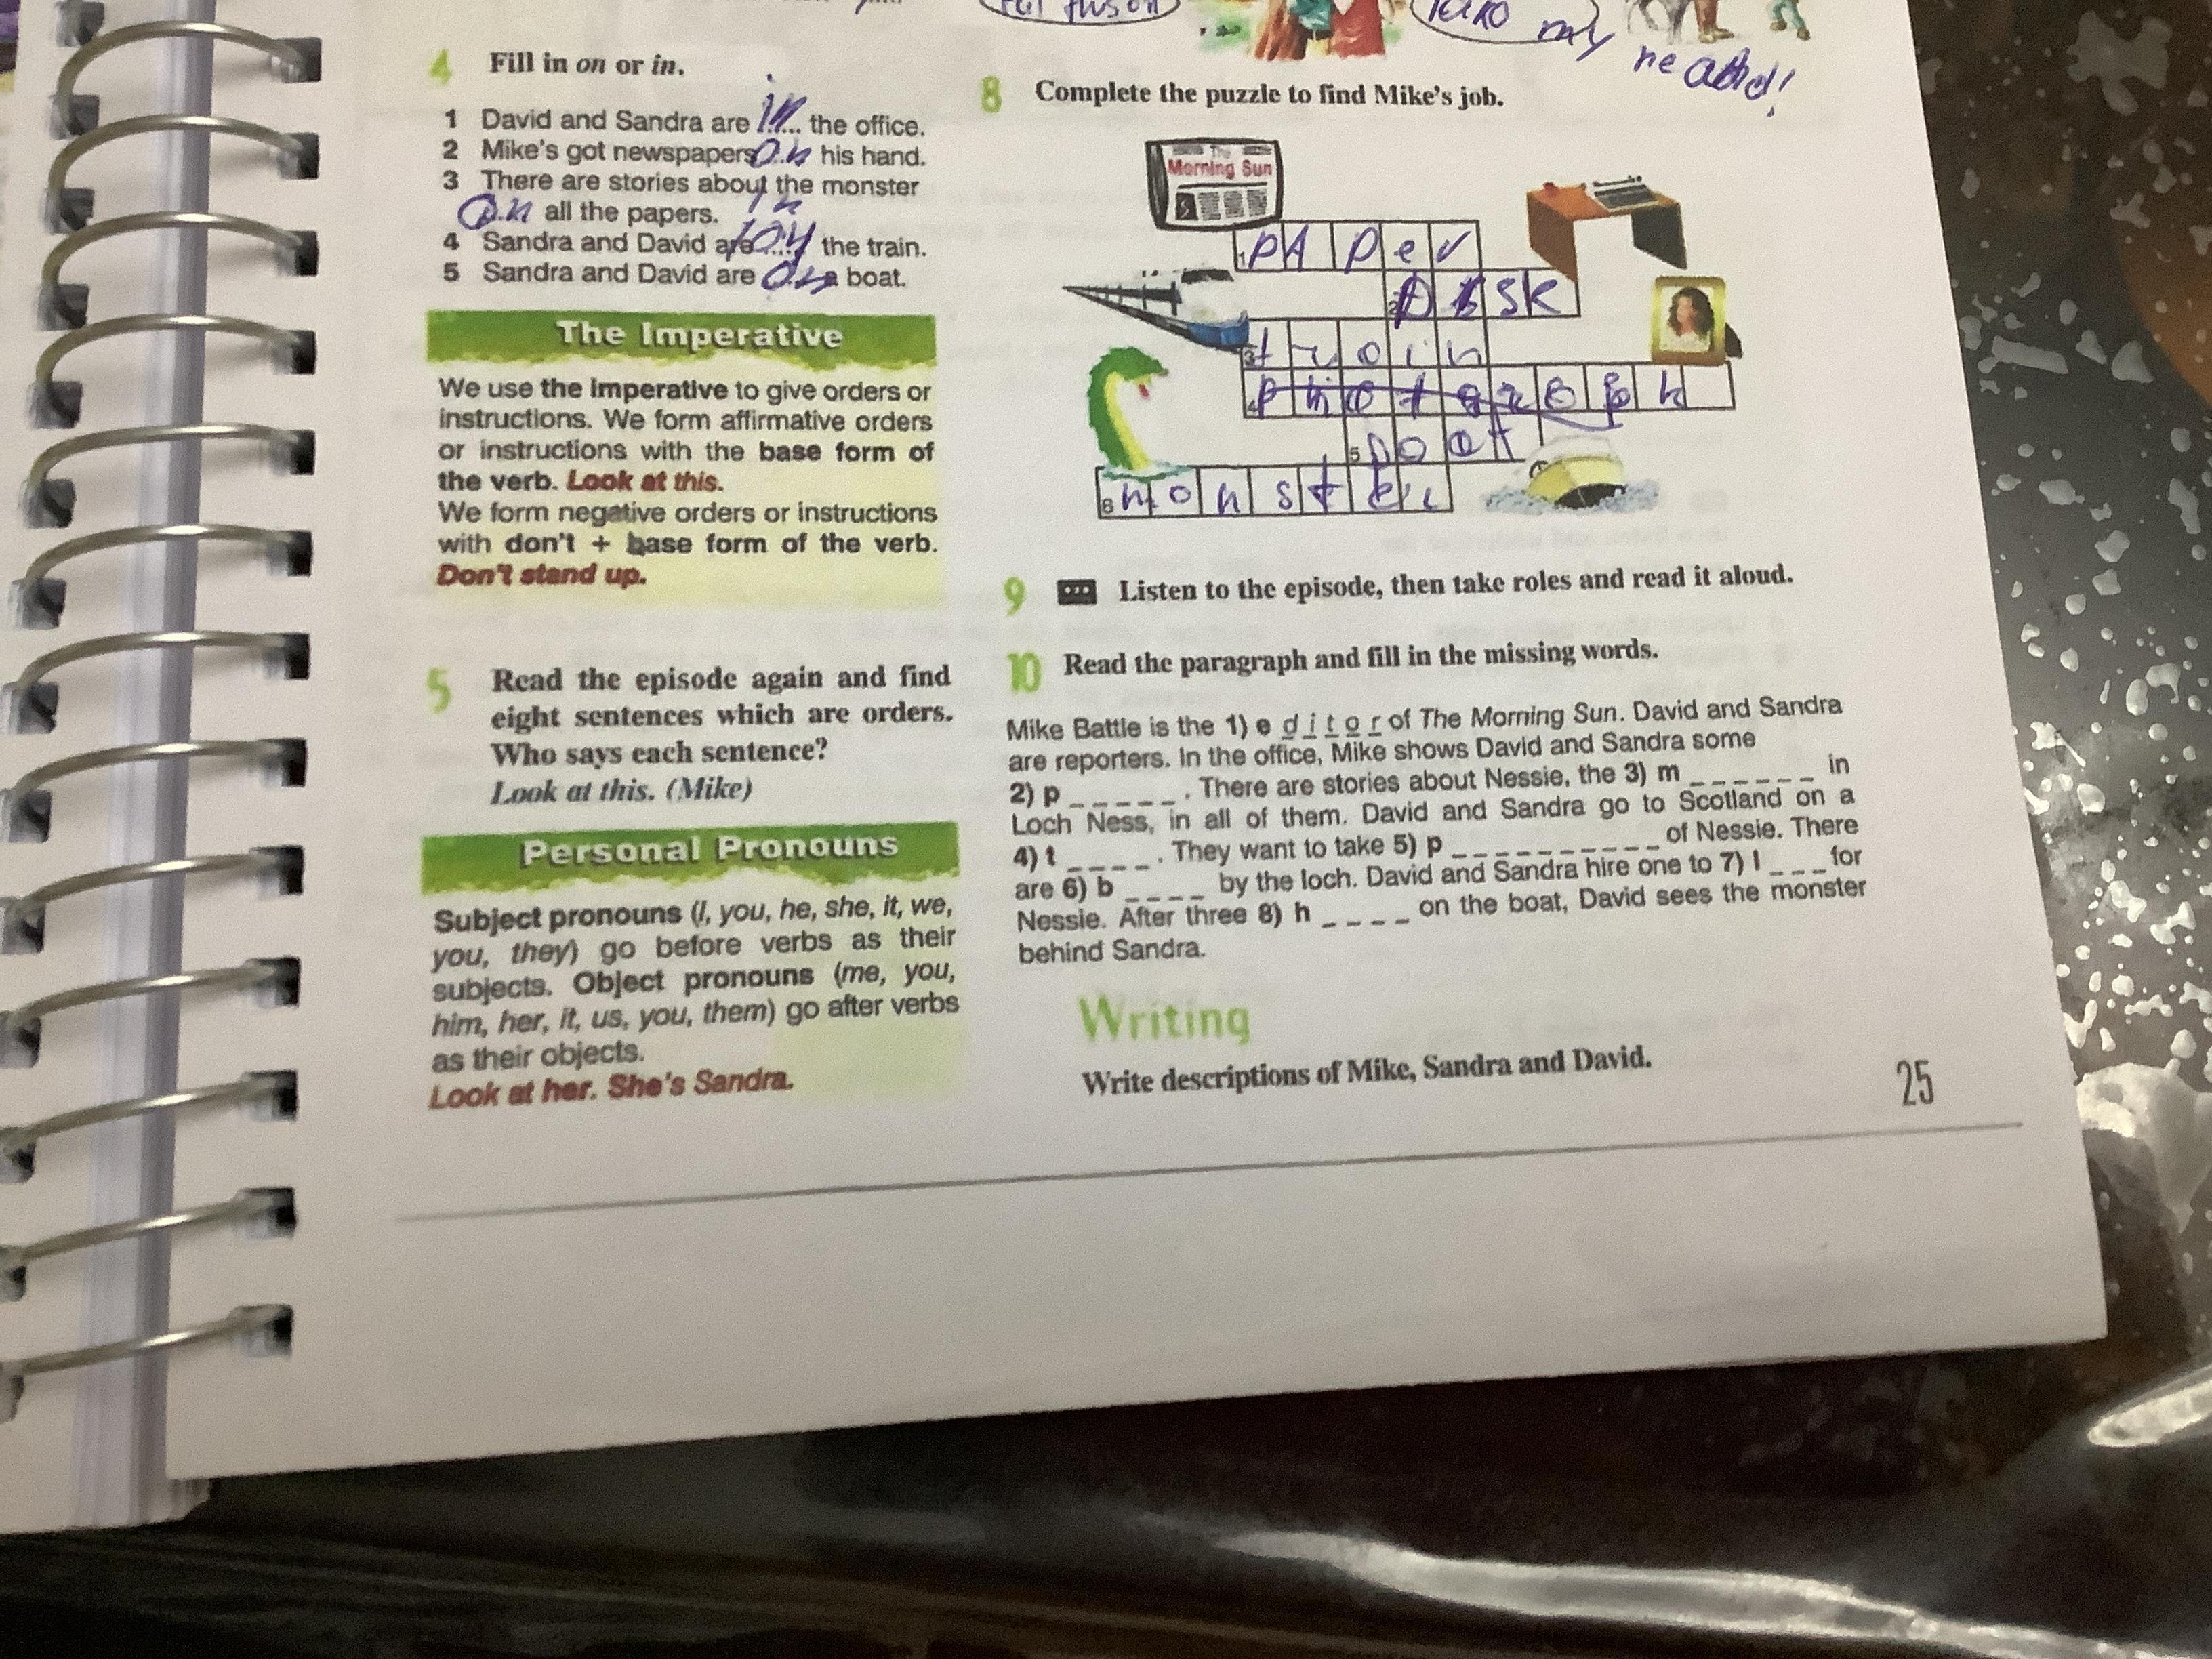 my
4 Fill in on or in.
1 David and Sandra are in the office.
2 Mike's got newspapers on his hand.
3 There are stories about the monster
on all the papers.
in
4 Sandra and David are the train.
5 Sandra and David are on a boat.
The Imperative
We use the imperative to give orders or
instructions. We form affirmative orders
or instructions with the base form of
the verb. Look at this.
We form negative orders or instructions
with don't + base form of the verb.
Don't stand up.
5 Read the episode again and find
eight sentences which are orders.
Who says each sentence?
Look at this. (Mike)
Personal Pronouns
Subject pronouns (I, you, he, she, it, we,
you, they) go before verbs as their
subjects. Object pronouns (me, you,
him, her, it, us, you, them) go after verbs
as their objects.
Look at her. She's Sandra.
8 Complete the puzzle to find Mike's job.
The
Morning Sun
1 pAper
2 DESK
3 train
4 photograph
5 boat
6 monster
9 Listen to the episode, then take roles and read it aloud.
10 Read the paragraph and fill in the missing words.
Mike Battle is the 1) e d i t o r of The Morning Sun. David and Sandra
are reporters. In the office, Mike shows David and Sandra some
2) p _ _ _ _ _ . There are stories about Nessie, the 3) m _ _ _ _ _ _ in
Loch Ness, in all of them. David and Sandra go to Scotland on a
4) t _ _ _ _ . They want to take 5) p _ _ _ _ _ _ _ _ _ _ of Nessie. There
are 6) b _ _ _ _ by the loch. David and Sandra hire one to 7) l _ _ _ for
Nessie. After three 8) h _ _ _ _ on the boat, David sees the monster
behind Sandra.
Writing
Write descriptions of Mike, Sandra and David.
25